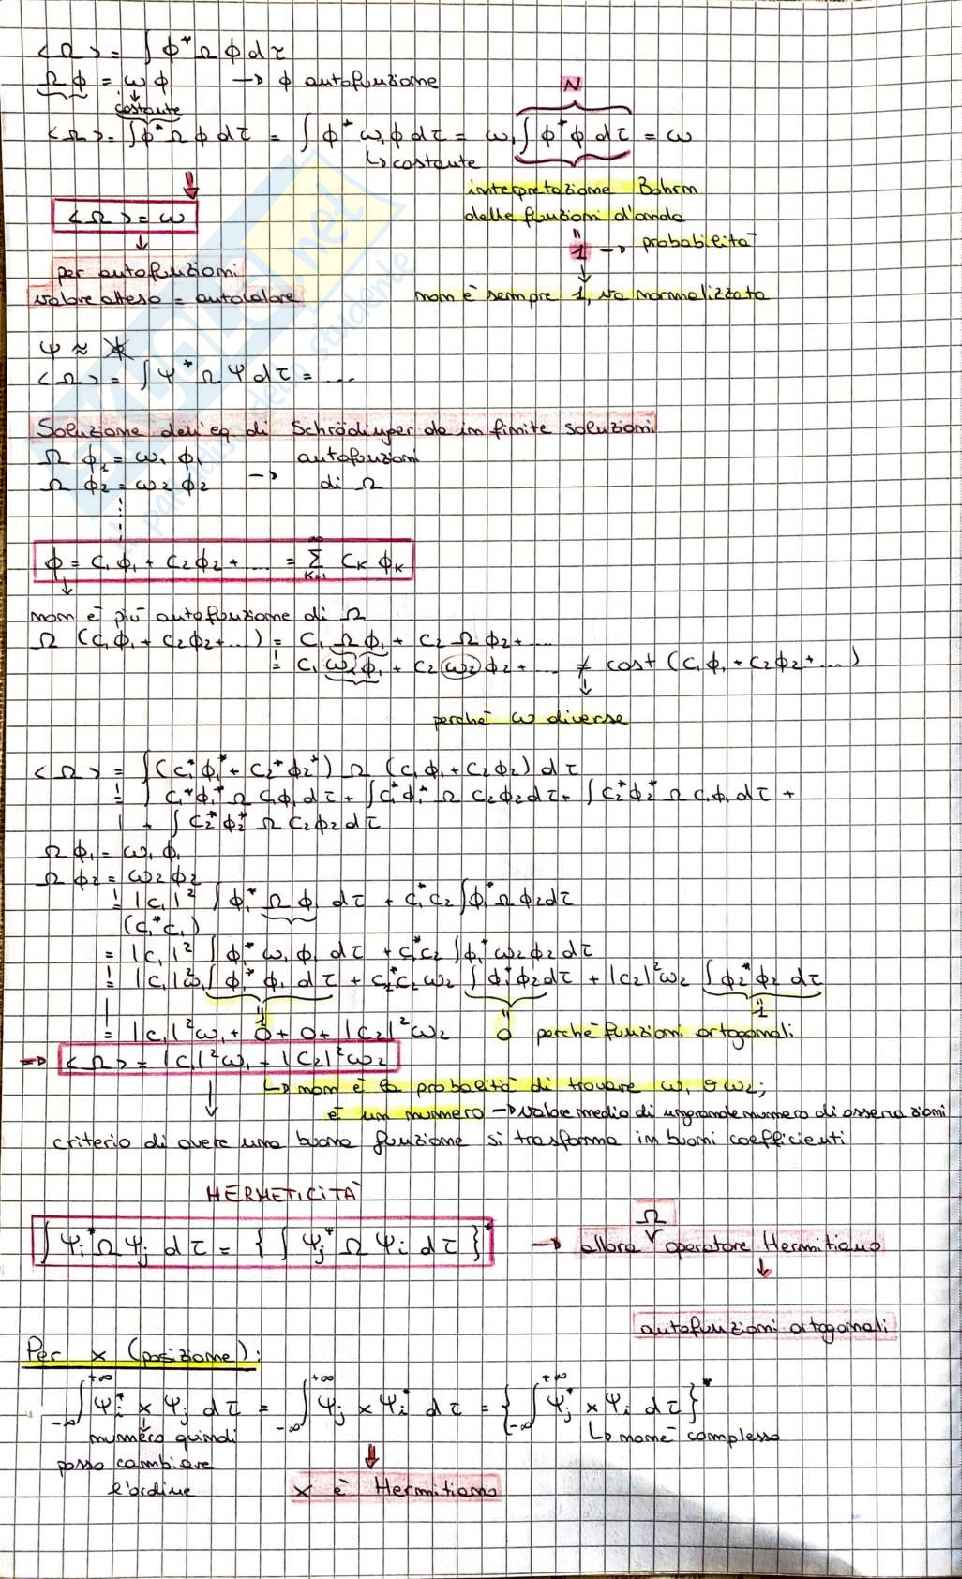 <Ω> = ∫ φ* Ω φ dτ
Ω φ = ω φ → φ autofunzione
costante
N
<Ω> = ∫ φ* Ω φ dτ = ∫ φ* ω, φ dτ = ω, ∫ φ* φ dτ = ω
↳ costante
interpretazione Bohrm
delle funzioni d'onda
<Ω> = ω
1 → probabilità
per autofunzioni
valore atteso = autovalore
non è sempre 1, va normalizzata
<Ω> = ∫ Ψ* Ω Ψ dτ = ...
Soluzione dell'eq. di Schrödinger da infinite soluzioni
Ω φ₁ = ω₁ φ₁ autofunzioni
Ω φ₂ = ω₂ φ₂ → di Ω
φ = c₁φ₁ + c₂φ₂ + .... = Σ cₖ φₖ
non è più autofunzione di Ω
Ω (c₁φ₁ + c₂φ₂ + ...) = c₁ Ω φ₁ + c₂ Ω φ₂ + ....
= c₁ ω₁ φ₁ + c₂ ω₂ φ₂ + .... ≠ cost (c₁φ₁ + c₂φ₂ + ....)
perché ω diverse
<Ω> = ∫ (c₁*φ₁* + c₂*φ₂*) Ω (c₁φ₁ + c₂φ₂) dτ
= ∫ c₁*φ₁* Ω c₁φ₁ dτ + ∫ c₁*φ₁* Ω c₂φ₂ dτ + ∫ c₂*φ₂* Ω c₁φ₁ dτ +
+ ∫ c₂*φ₂* Ω c₂φ₂ dτ
Ω φ₁ = ω₁ φ₁
Ω φ₂ = ω₂ φ₂
= |c₁|² ∫ φ₁* Ω φ₁ dτ + c₁*c₂ ∫ φ₁* Ω φ₂ dτ
(c₁*c₁)
= |c₁|² ∫ φ₁* ω₁ φ₁ dτ + c₁*c₂ ∫ φ₁* ω₂ φ₂ dτ
= |c₁|² ω₁ ∫ φ₁* φ₁ dτ + c₁*c₂ ω₂ ∫ φ₁* φ₂ dτ + |c₂|² ω₂ ∫ φ₂* φ₂ dτ
1
= |c₁|² ω₁ + 0 + 0 + |c₂|² ω₂ 0 perché funzioni ortogonali
⇒ <Ω> = |c₁|² ω₁ + |c₂|² ω₂
↳ non è la probabilità di trovare ω₁ o ω₂;
è un numero → valore medio di un grande numero di osservazioni
criterio di avere una buona funzione si trasforma in buoni coefficienti
HERMETICITÀ
∫ Ψi* Ω Ψj dτ = { ∫ Ψj* Ω Ψi dτ }* → allora Ω operatore Hermitiano
autofunzioni ortogonali
Per x (posizione):
∫ Ψi* x Ψj dτ = ∫ Ψj x Ψi* dτ = { ∫ Ψj* x Ψi dτ }*
numero quindi ↳ non è complesso
posso cambiare
l'ordine x è Hermitiano